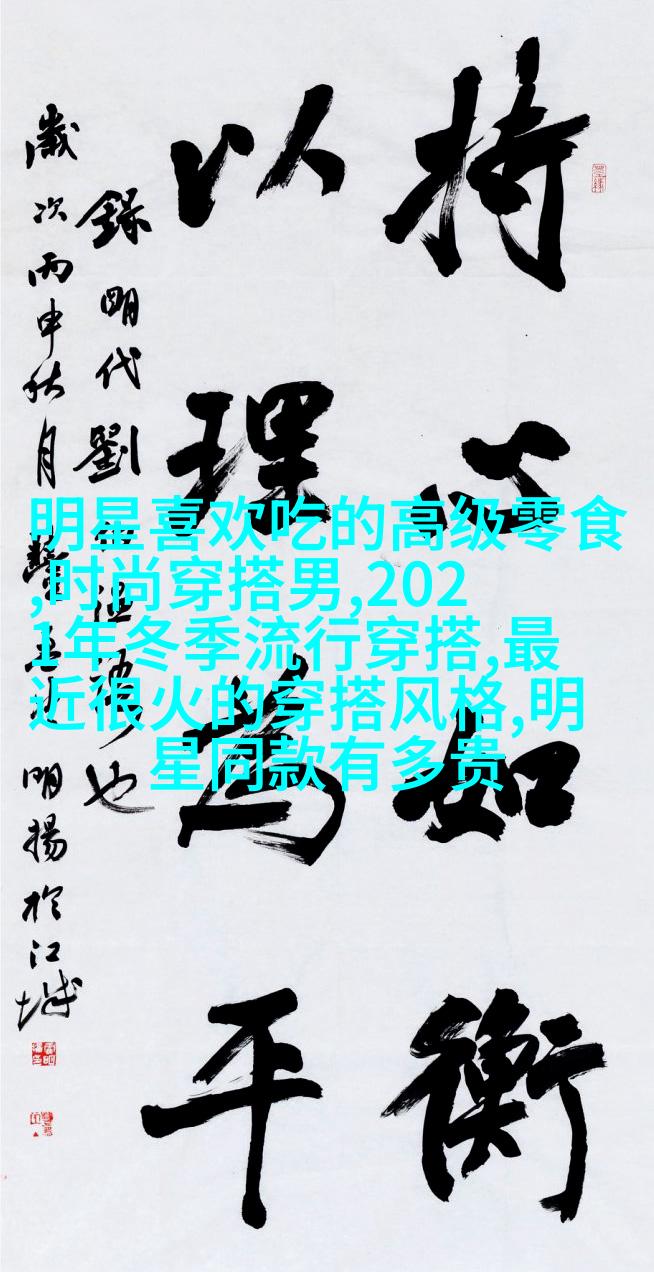 持心如衡
以理為平
錄明代劉也
歲次丙申秋月明揚於江城
明星喜欢吃的高级零食
,时尚穿搭男,202
1年冬季流行穿搭,最
近很火的穿搭风格,明
星同款有多贵